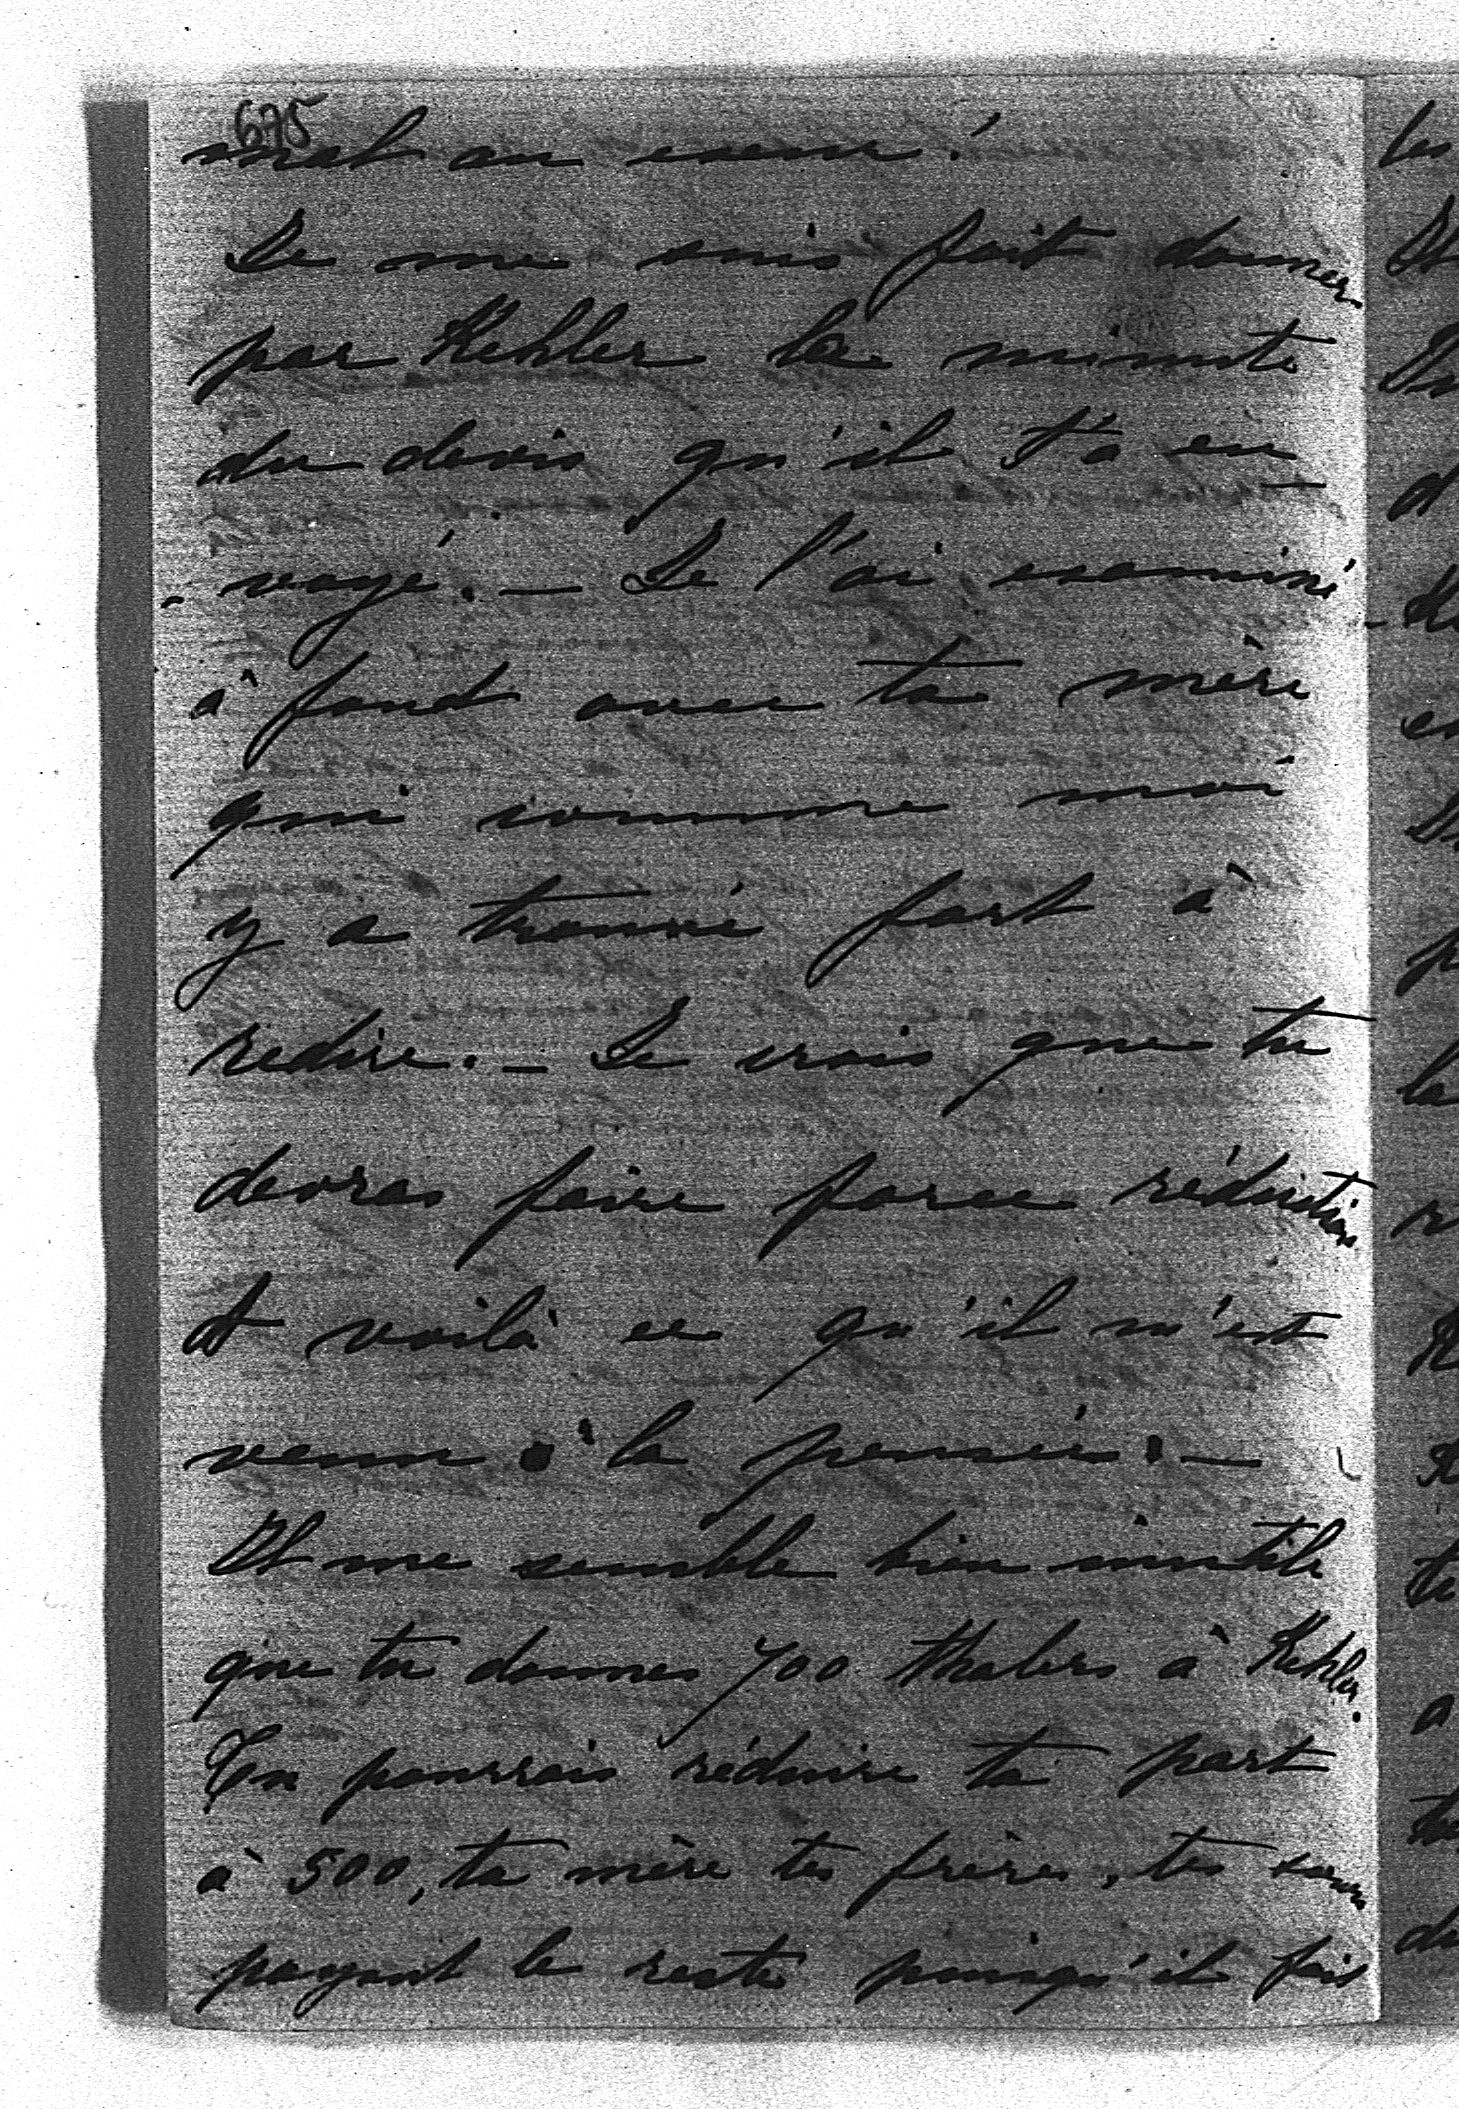 675
mal au coeur!
Je me suis fait donner
par Kehler la minute
du devis qu'il t'a en
- voyé. — Je l'ai examiné
à fond avec ta mère
qui comme moi
y a trouvé fort à
redire. — Je crois que tu
devras faire force réduction
et voilà ce qu'il m'est
venu à la pensée. —
Il me semble bien inutile
que tu donnes 700 thalers à Kehler.
Tu pourrais réduire ta part
à 500, ta mère tes frères, tes soeurs
payant le reste puisqu'il fait